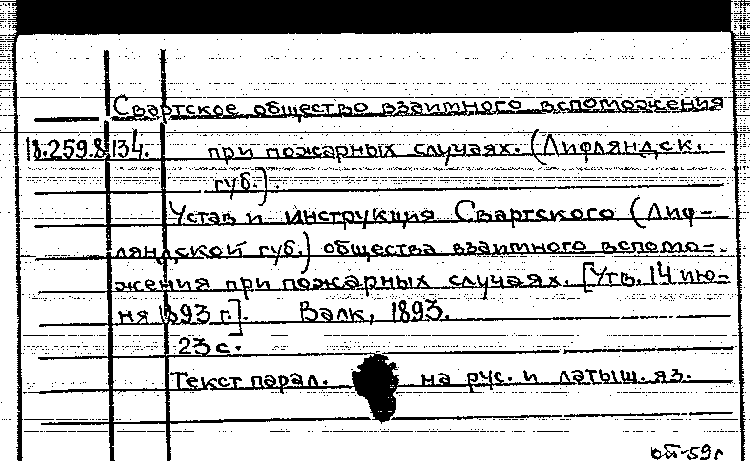 Свартское общество взаимного вспоможения
18.259.8.134. при пожарных случаях. (Лифляндск.
губ.).
Устав и инструкция Свартского (Лиф-
ляндской губ.) общества взаимного вспомо-
жения при пожарных случаях. [Утв. 14 ию-
ня 1893 г.]. Валк, 1893.
23 с.
Текст парал. на рус. и латыш. яз.